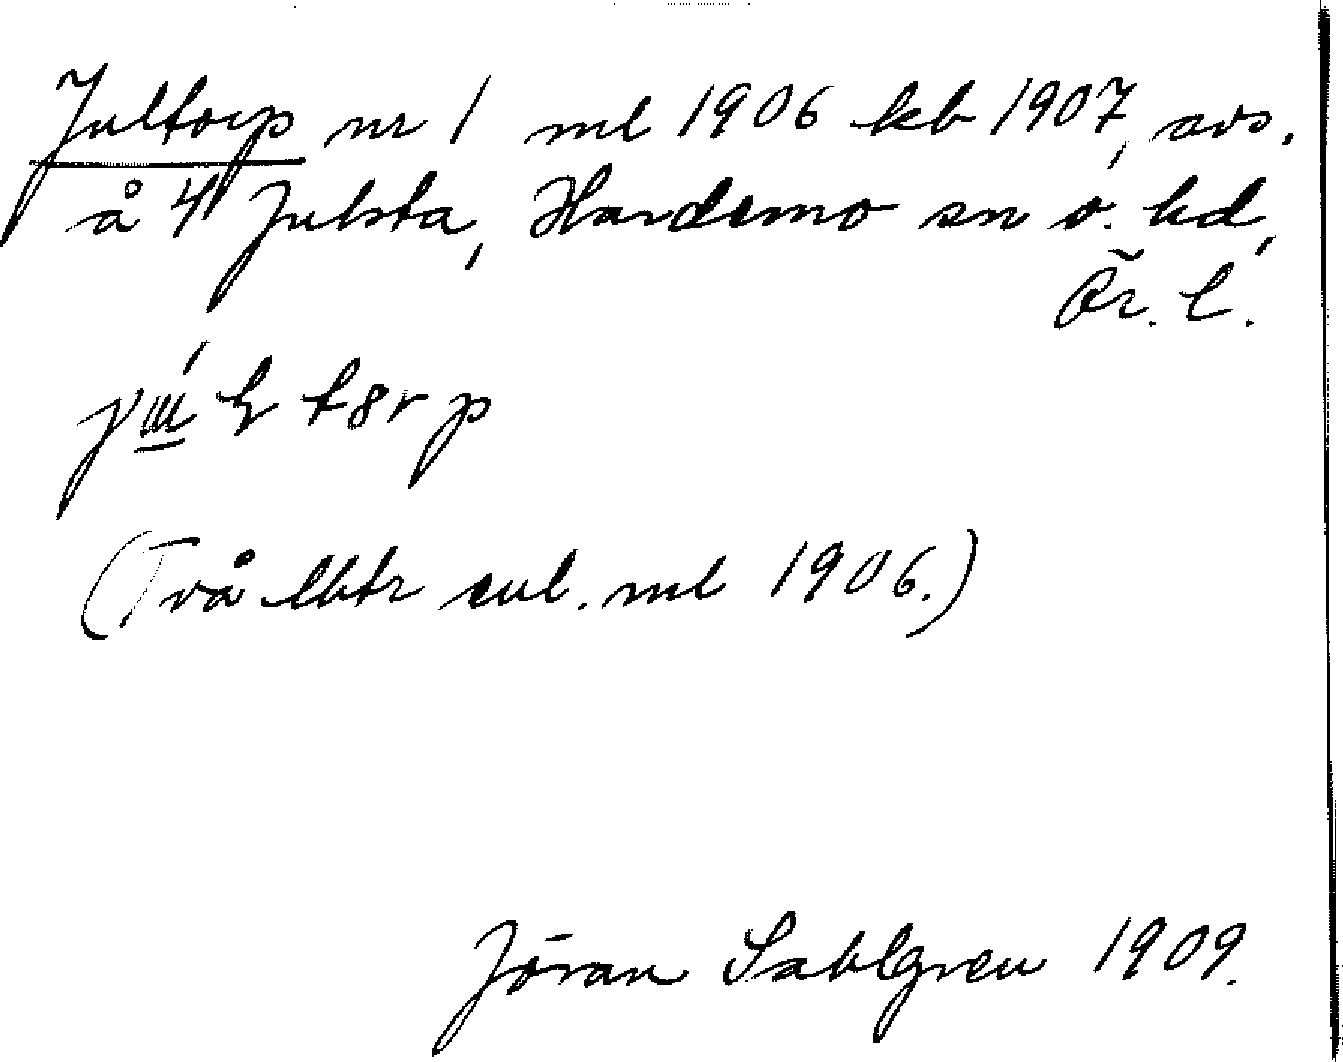 Jultorp nr 1 ml 1906 kb 1907, avs.
å 4 Julsta, Hardemo sn o. hd,
Ör. l.
(Två lhtr enl. ml 1906.)
Jöran Sahlgren 1909.